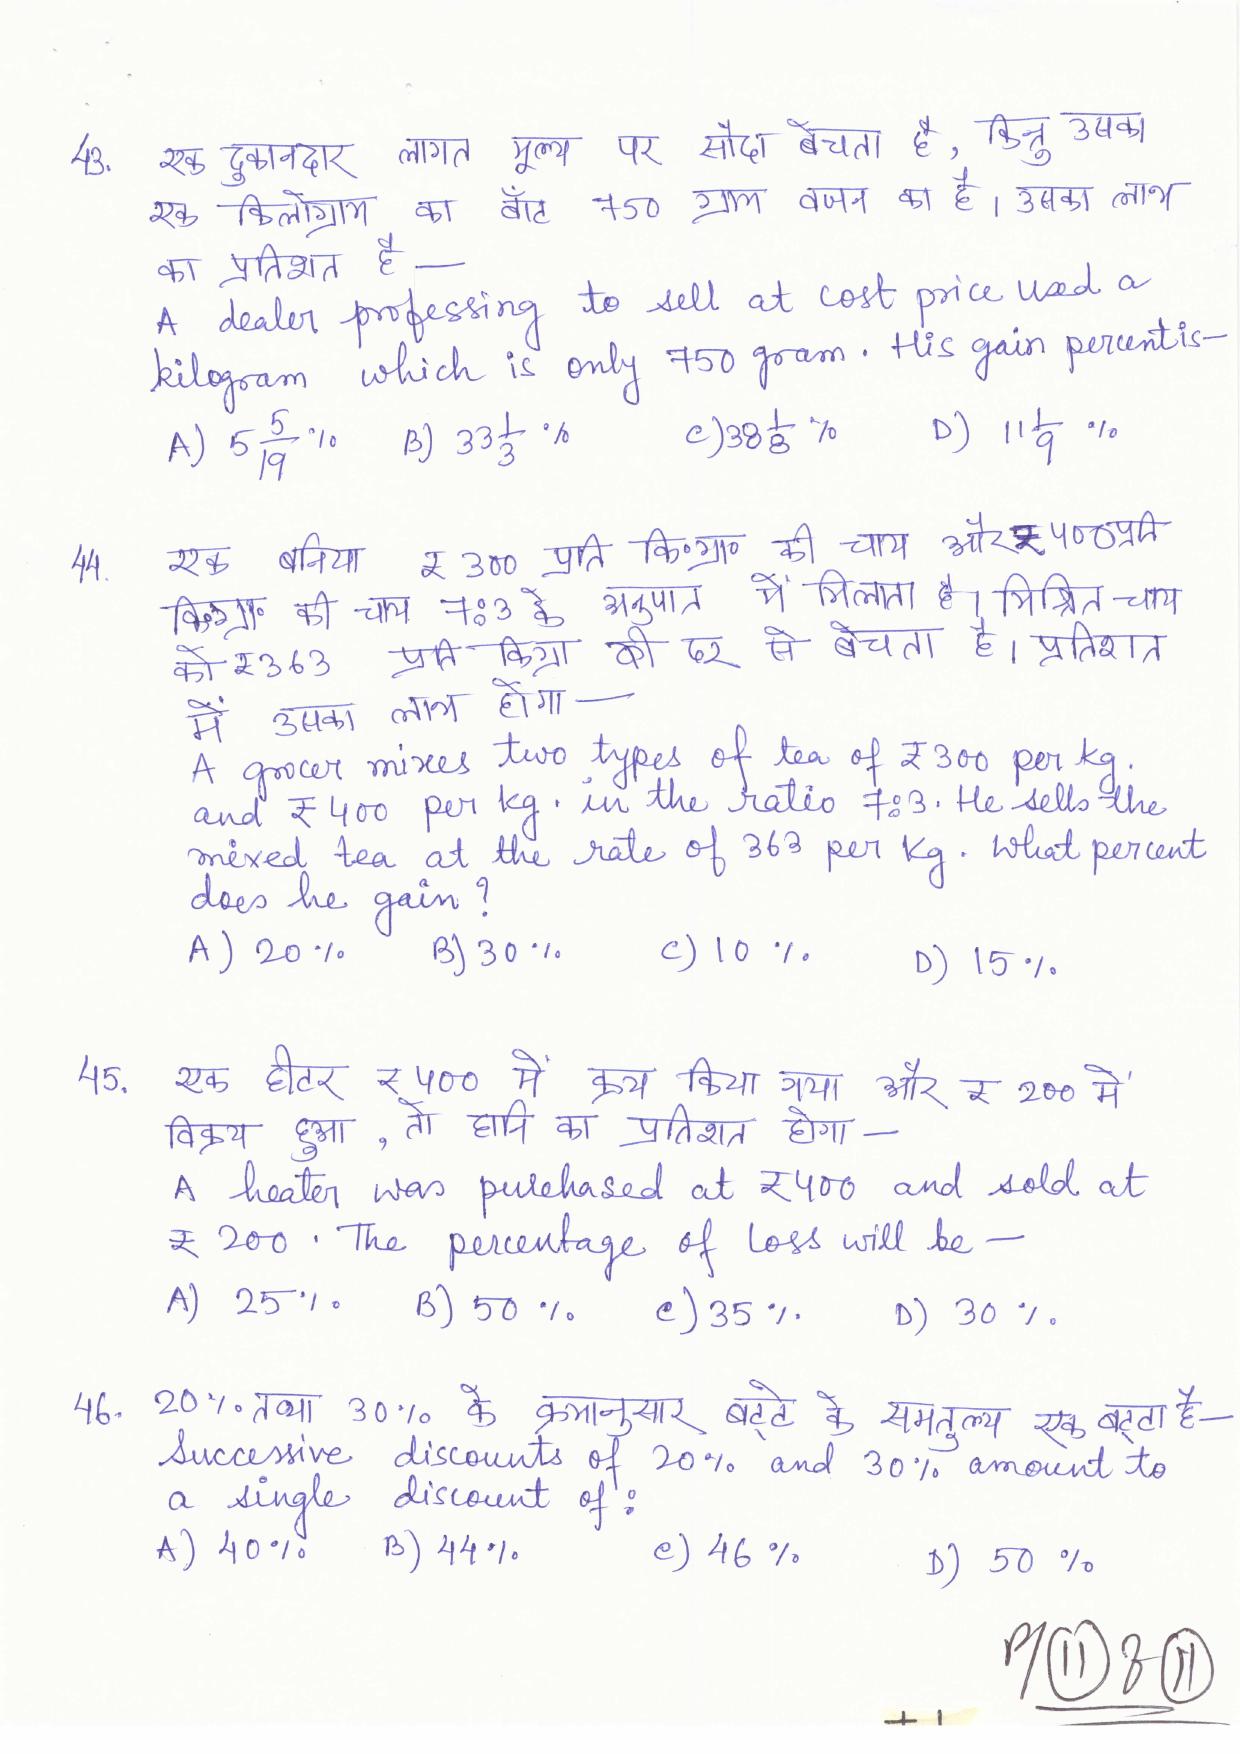 43. एक दुकानदार लागत मूल्य पर सौदा बेचता है, किन्तु उसका
एक किलोग्राम का बाँट 750 ग्राम वजन का है। उसका लाभ
का प्रतिशत है —
A dealer professing to sell at cost price used a
kilogram which is only 750 gram. His gain percent is —
A) 5 5/19 % B) 33 1/3 % C) 38 1/8 % D) 11 1/9 %
44. एक बनिया ₹ 300 प्रति कि॰ग्रा॰ की चाय और ₹ 400 प्रति
कि॰ग्रा॰ की चाय 7:3 के अनुपात में मिलाता है। मिश्रित चाय
को ₹ 363 प्रति किग्रा की दर से बेचता है। प्रतिशत
में उसका लाभ होगा —
A grocer mixes two types of tea of ₹ 300 per kg.
and ₹ 400 per kg. in the ratio 7:3. He sells the
mixed tea at the rate of 363 per kg. What percent
does he gain?
A) 20 % B) 30 % C) 10 % D) 15 %
45. एक हीटर ₹ 400 में क्रय किया गया और ₹ 200 में
विक्रय हुआ, तो हानि का प्रतिशत होगा —
A heater was purchased at ₹ 400 and sold at
₹ 200. The percentage of loss will be —
A) 25 % B) 50 % C) 35 % D) 30 %
46. 20 % तथा 30 % के क्रमानुसार बट्टे के समतुल्य एक बट्टा है —
Successive discounts of 20 % and 30 % amount to
a single discount of:
A) 40 % B) 44 % C) 46 % D) 50 %
P/11